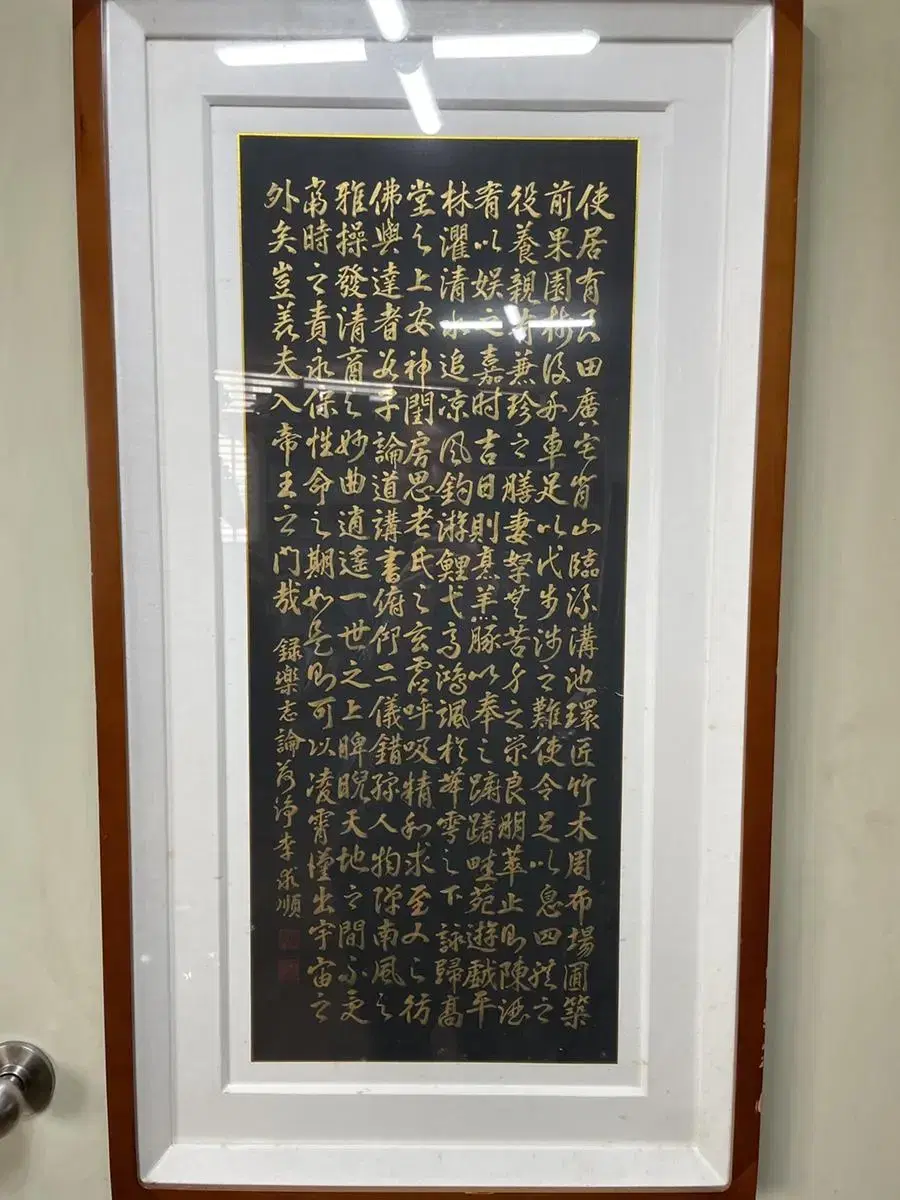 使居有良田廣宅背山臨流溝池環匝竹木周布場圃築
前果園樹後舟車足以代步涉之難使令足以息四體之
役養親有兼珍之膳妻孥無苦身之勞良朋萃止則陳酒
肴以娛之嘉时吉日則烹羔豚以奉之躕躇畦苑遊戲平
林濯清水追凉風釣游鯉弋高鴻諷於舞雩之下詠歸高
堂之上安神閨房思老氏之玄虛呼吸精和求至人之彷
佛與達者數子論道講書俯仰二儀錯綜人物彈南風之
雅操發清商之妙曲逍遙一世之上睥睨天地之間不受
當時之責永保性命之期如是則可以凌霄漢出宇宙之
外矣豈羨夫入帝王之門哉 録樂志論 李 順